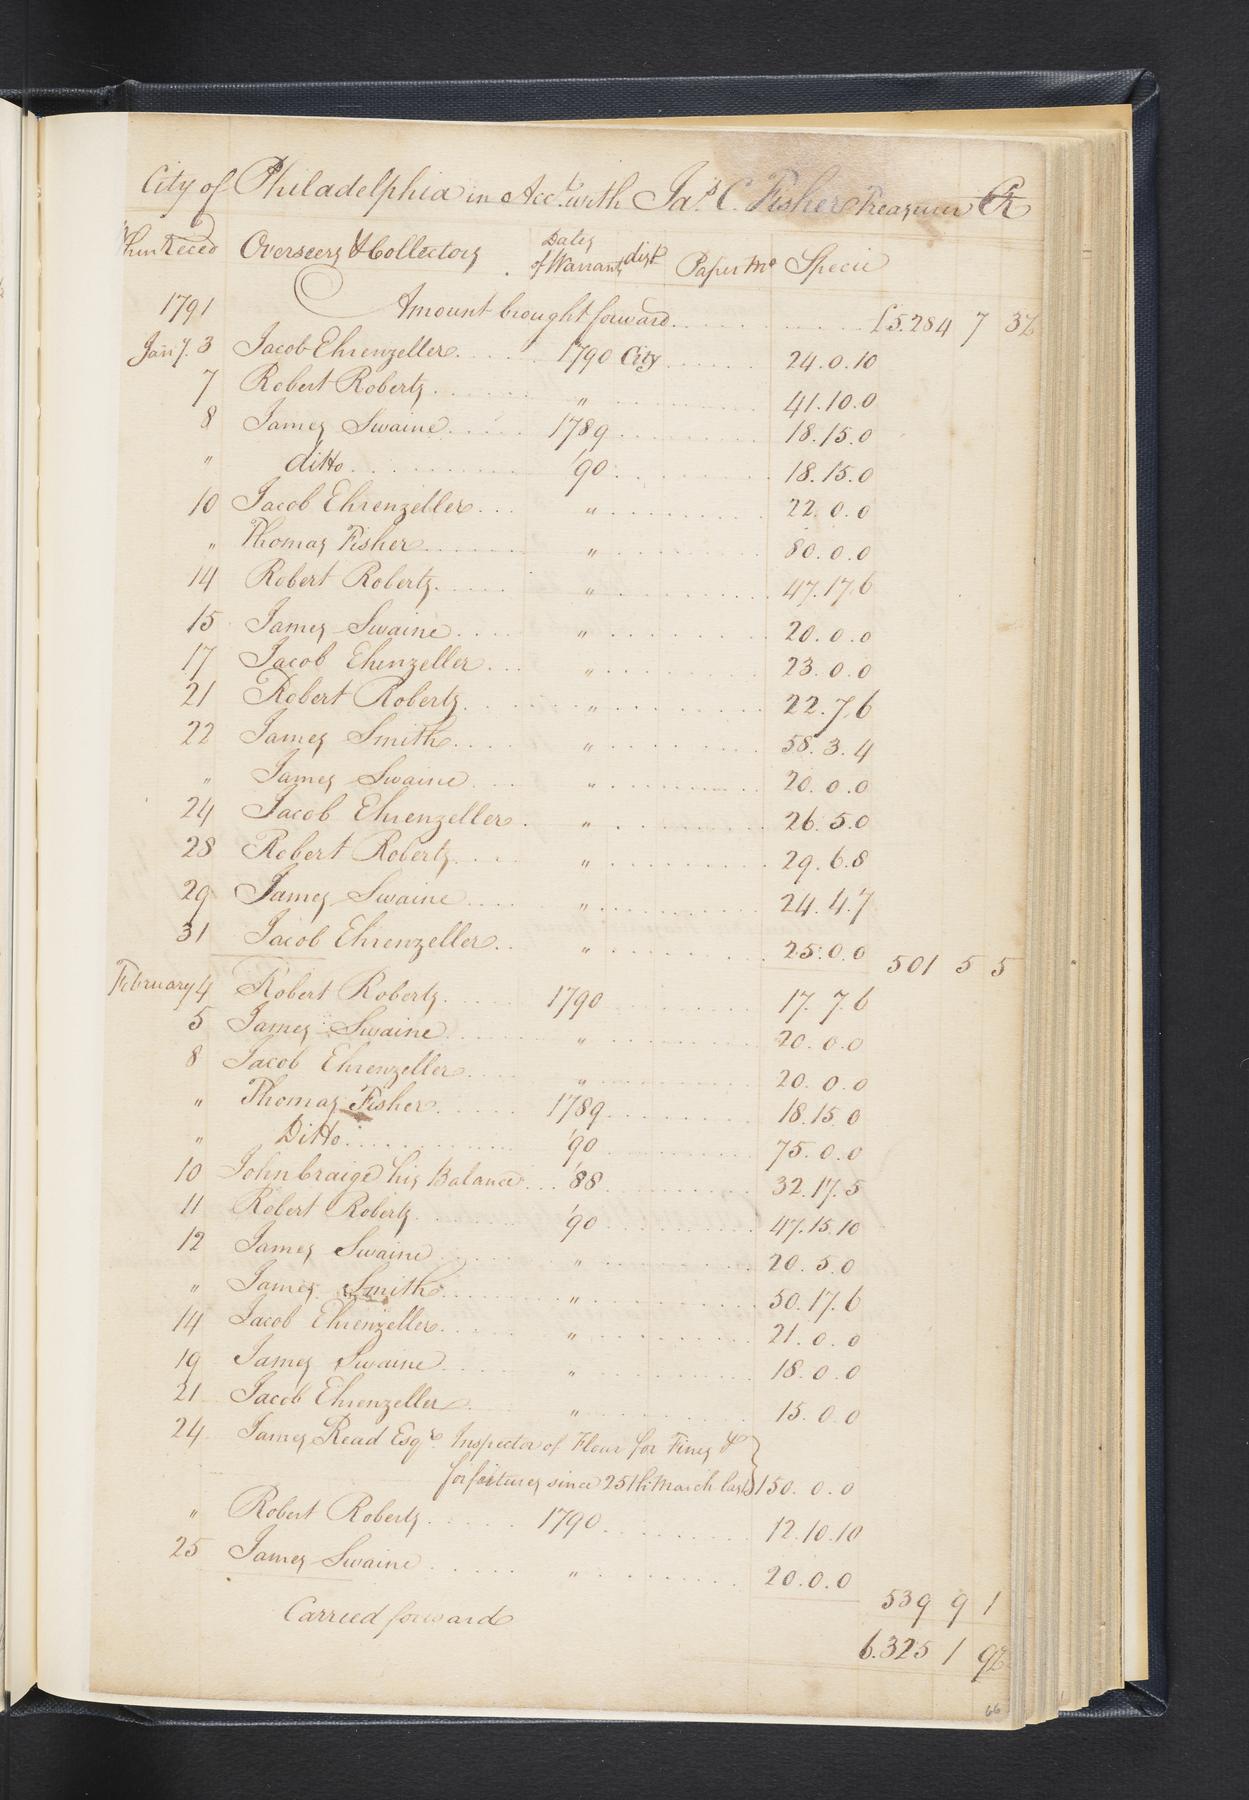 City of Philadelphia in Acct. with Jas. C. Fisher Treasurer Cr
When Reced Overseers & Collectors Dates of Warrants dist Paper Mo Specie
1791 Amount brought forward £5.284 7 3½
Jany. 3 Jacob Ehrenzeller 1790 City 24.0.10
7 Robert Roberts " 41.10.0
8 James Swaine 1789 18.15.0
" ditto '90 18.15.0
10 Jacob Ehrenzeller " 22.0.0
" Thomas Fisher " 80.0.0
14 Robert Roberts " 47.17.6
15 James Swaine " 20.0.0
17 Jacob Ehenzeller " 23.0.0
21 Robert Roberts " 22.7.6
22 James Smith " 58.3.4
" James Swaine " 20.0.0
24 Jacob Ehrenzeller " 26.5.0
28 Robert Roberts " 29.6.8
29 James Swaine " 24.4.7
31 Jacob Ehrenzeller " 25.0.0 501 5 5
February 4 Robert Roberts 1790 17.7.6
5 James Swaine " 20.0.0
8 Jacob Ehrenzeller " 20.0.0
" Thomas Fisher 1789 18.15.0
" Ditto '90 75.0.0
10 John Craige his Balance '88 32.17.5
11 Robert Roberts '90 47.15.10
12 James Swaine " 20.5.0
" James Smith " 50.17.6
14 Jacob Ehrenzeller " 21.0.0
19 James Swaine " 18.0.0
21 Jacob Ehrenzeller " 15.0.0
24 James Read Esqr. Inspector of Flour for Fines &
forfeitures since 25th March last 150.0.0
" Robert Roberts 1790 12.10.10
25 James Swaine " 20.0.0
539 9 1
Carried forward 6.325 1 9½
66